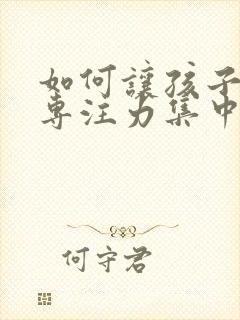 如何讓孩子
專注力集中
何守君